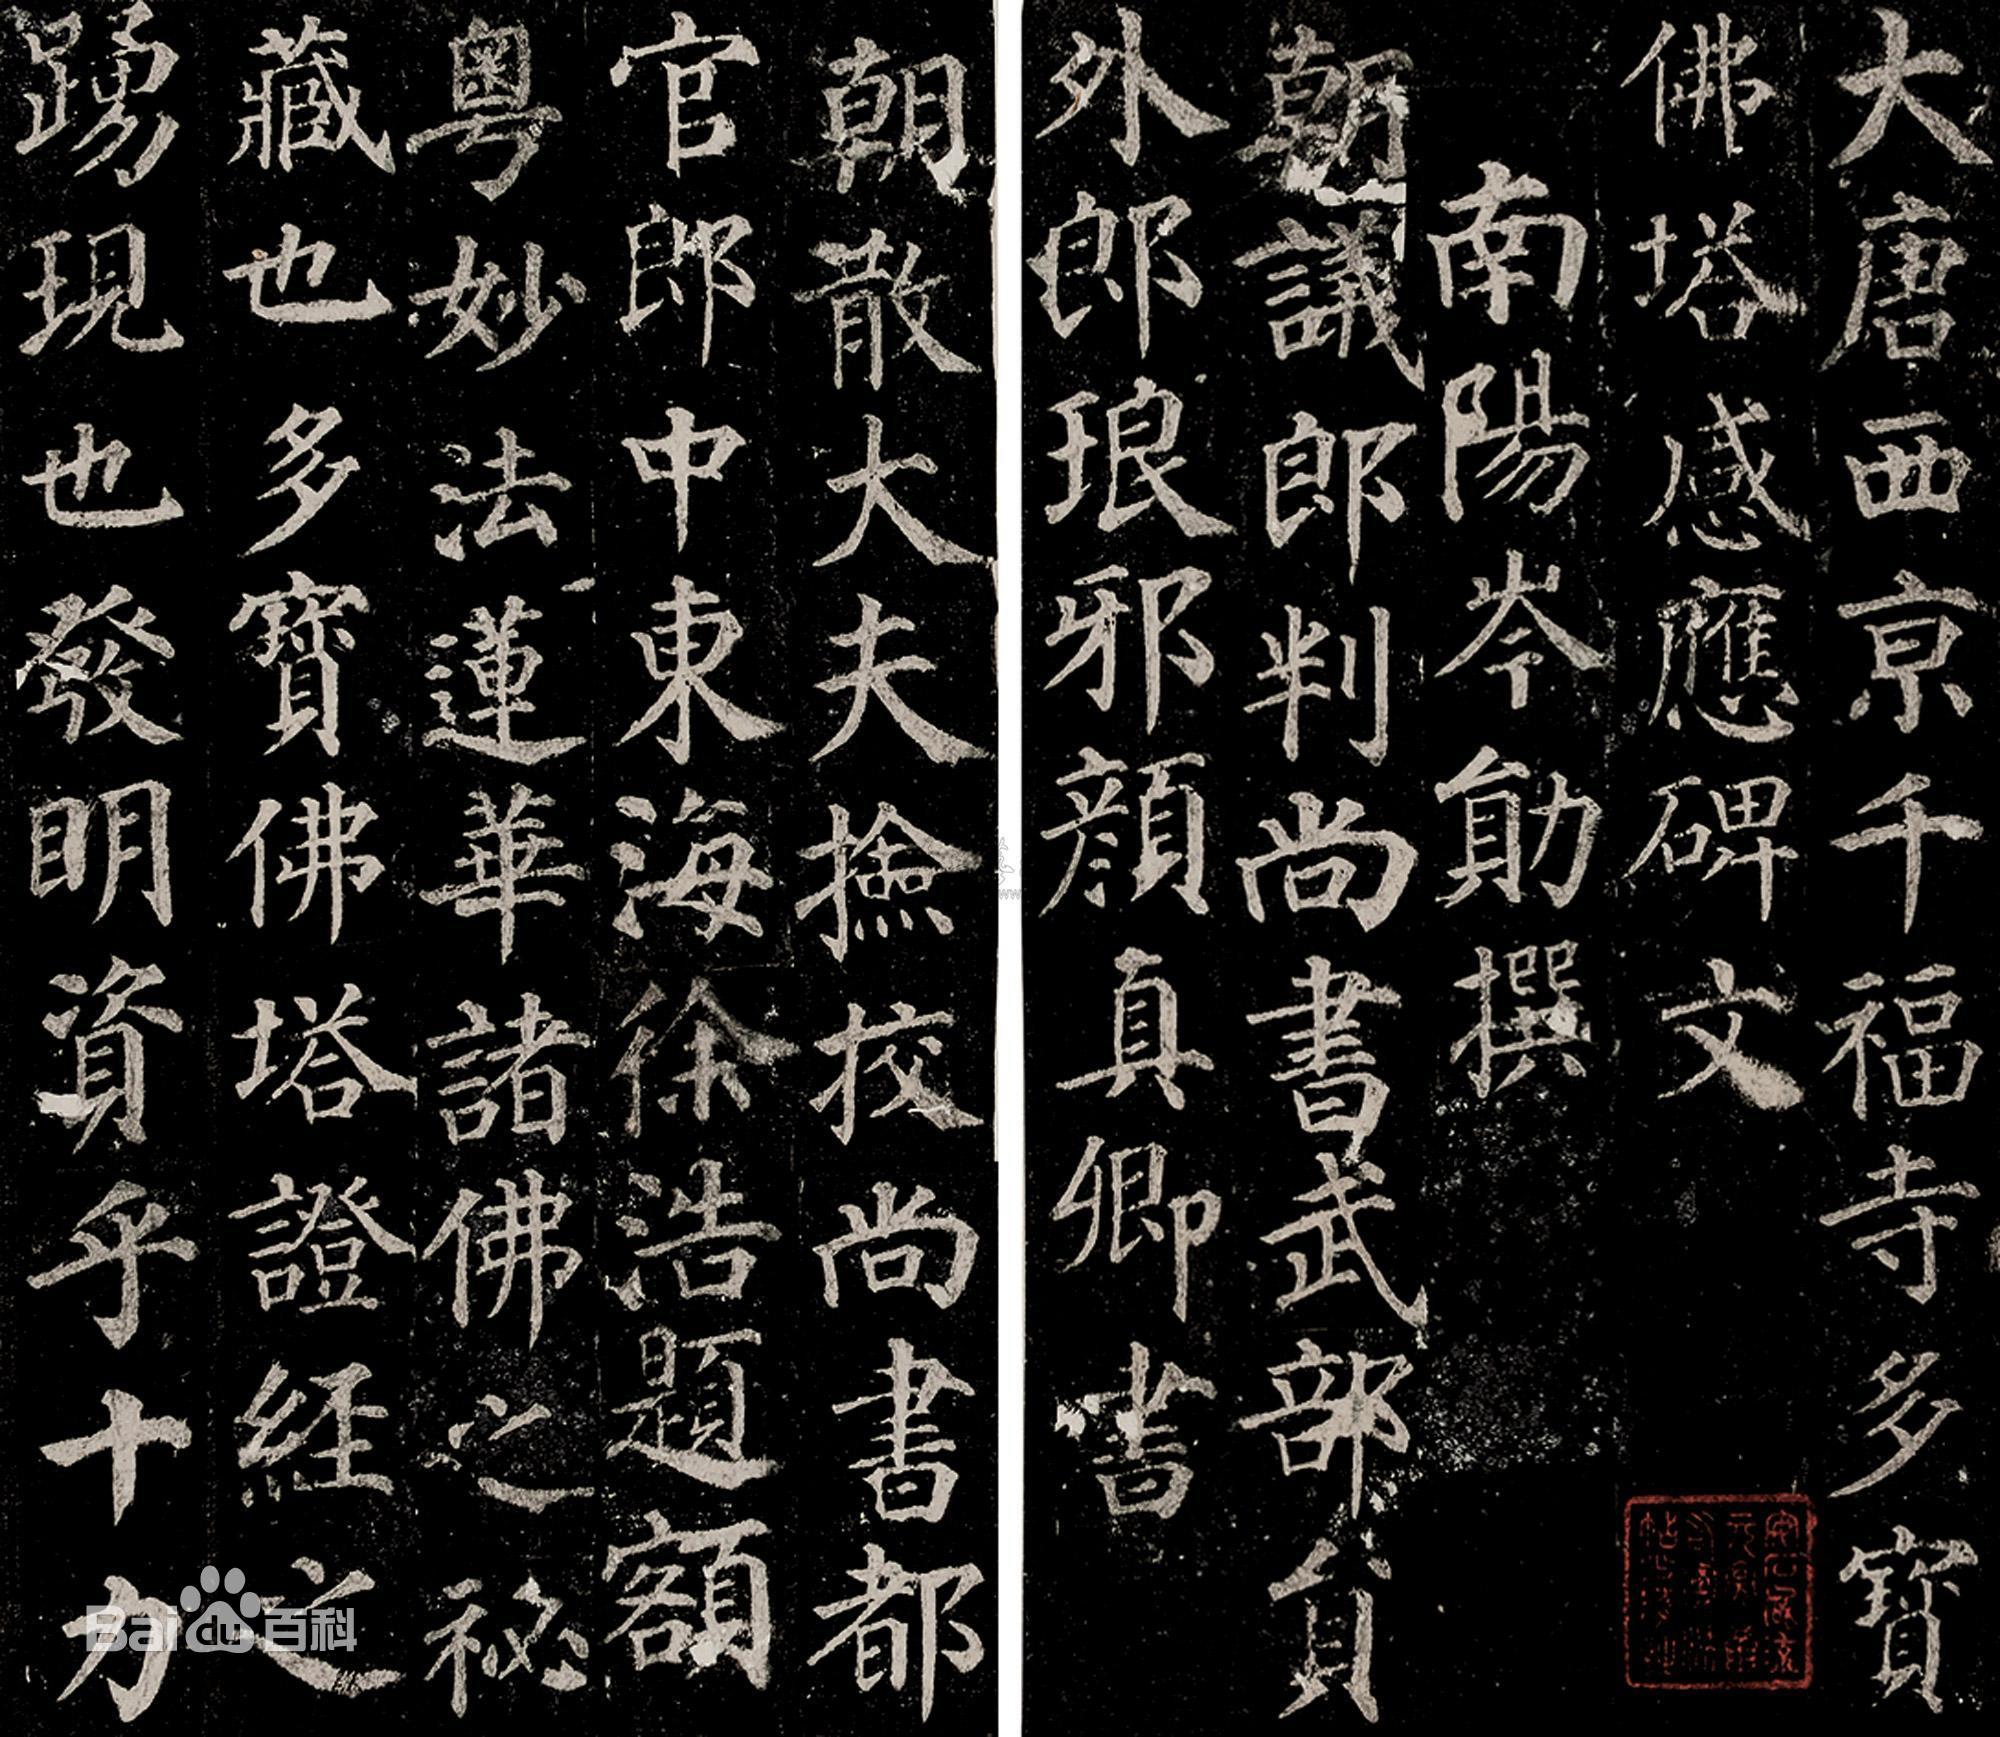 大唐西京千福寺多寶
佛塔感應碑文
南陽岑勛撰
朝議郎判尚書武部員
外郎琅邪顏真卿書
朝散大夫撿挍尚書都
官郎中東海徐浩題額
粵妙法蓮華諸佛之祕
藏也多寶佛塔證経之
踴現也發明資乎十力
Bai百科